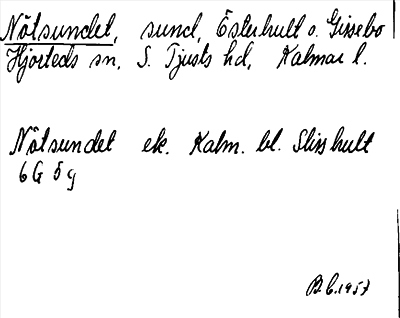 Nötsundet, sund, Österhult o. Gissebo
Hjorteds sn. S. Tjusts hd, Kalmar l.
Nötsundet ek. Kalm. bl. Slisshult
6 G 5 g
B.C. 1957